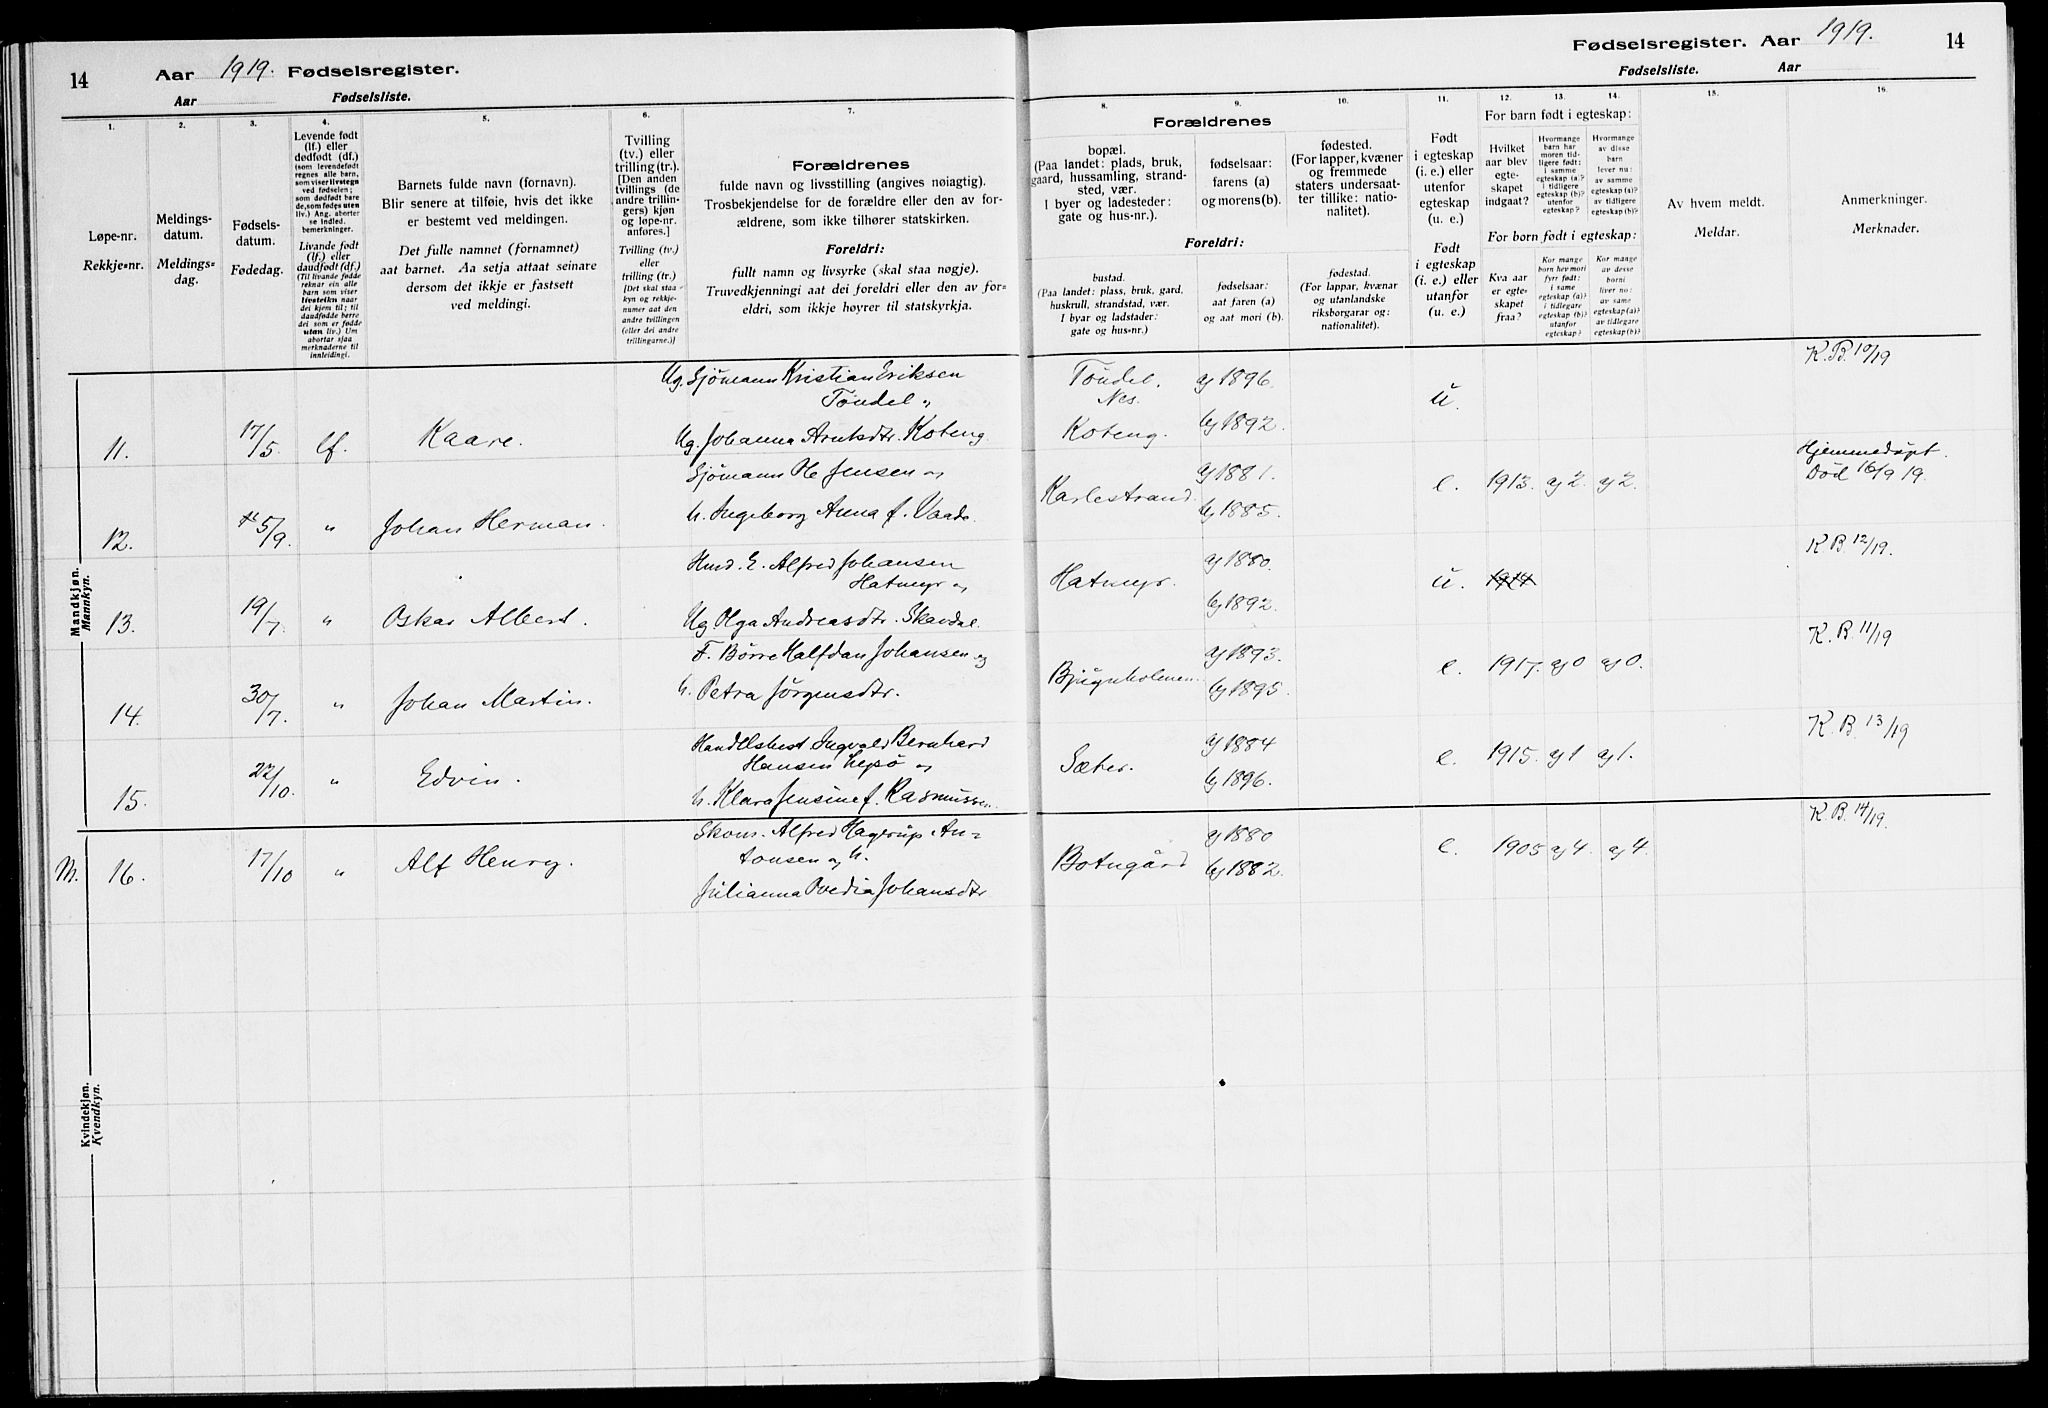 14
Aar 1919. Fødselsregister.
Aar Fødselsliste.
Fødselsregister. Aar 1919.
14
Fødselsliste. Aar
1.
Løpe-nr.
Rekkje=nr.
2.
Meldings-
datum.
Meldings=
dag.
3.
Fødsels-
datum.
Fødedag.
4.
Levende født
(lf.) eller
dødfødt (df.)
(som levendefødt
regnes alle barn,
som viser livstegn
ved fødselen;
som dødfødt bare
de, som fødes uten
liv.) Ang. aborter
se indled.
bemerkninger.
Livande født
(lf.) eller
daudfødt (df.)
(Til livande fødde
reknar ein alle
barn som viser
livsteikn naar
dei kjem til; til
daudfødde berre
dei som er fødde
utan liv.) Um
abortar sjaa
merknaderne til
innleidingi.
5.
Barnets fulde navn (fornavn).
Blir senere at tilføie, hvis det ikke
er bestemt ved meldingen.
Det fulle namnet (fornamnet)
aat barnet. Aa setja attaat seinare
dersom det ikkje er fastsett
ved meldingi.
6.
Tvilling
(tv.) eller
trilling (tr.).
[Den anden
tvillings (de
andre trillin-
gers) kjøn
og løpe-nr.
anføres.]
Tvilling (tv.)
eller
trilling (tr.)
[Det skal staa
kyn og rekkje-
numer aat den
andre tvillingen
(eller dei andre
trillingarne.)]
7.
Forældrenes
fulde navn og livsstilling (angives nøiagtig).
Trosbekjendelse for de forældre eller den av for-
ældrene, som ikke tilhører statskirken.
Foreldri:
fullt namn og livsyrke (skal staa nøgje).
Truvedkjenningi aat dei foreldri eller den av for=
eldri, som ikkje høyrer til statskyrkja.
8. 9. 10.
Forældrenes
bopæl.
(Paa landet: plads, bruk,
gaard, hussamling, strand-
sted, vær.
I byer og ladesteder:
gate og hus-nr.).
fødselsaar:
farens (a)
og morens (b).
fødested.
(For lapper, kvæner
og fremmede
staters undersaat-
ter tillike: natio-
nalitet).
Foreldri:
bustad.
(Paa landet: plass, bruk, gard,
huskrull, strandstad, vær.
I byar og ladstader:
gate og hus=nr.)
fødselsaar:
aat faren (a)
og aat mori (b).
fødestad.
(For lappar, kvænar
og utanlandske
riksborgarar og:
nationalitet).
11.
Født
i egteskap
(i. e.) eller
utenfor
egteskap
(u. e.)
Født
i egteskap
(i. e.) eller
utanfor
(u. e.)
12. 13. 14.
For barn født i egteskap:
Hvilket
aar blev
egte-
skapet
indgaat?
Hvormange
barn har
moren tid-
ligere født:
i samme
egteskap (a)?
i tidligere
egteskap (b)?
utenfor
egteskap?
Hvormange
av disse
barn
lever nu:
av samme
egteskap (a)?
av tidligere
egteskap (b)?
For born født i egteskap:
Kva aar
er egte-
skapet
fraa?
Kor mange
born hev mori
fyrr født:
i same
egteskap (a)?
i tidlegare
egteskap (b)?
utanfor
egteskap?
Kor mange
av desse
borni
liver no:
av same
egteskap (a)?
av tidlegare
egteskap (b)?
15.
Av hvem meldt.
Meldar.
16.
Anmerkninger.
Merknader.
Mandkjøn.
Mannkyn.
Ug. Sjømann Kristian Eriksen
Tøndel og
11. 17/5. lf. Kaare. Ug. Johanna Arntsdtr. Koteng.
Tøndel.
Nes.
Koteng.
a) 1896.
b) 1892.
u.
K. B. 10/19
Sjømann Jensen og
12. 5/9. " Johan Herman. h. Ingeborg Anna f.
Karlestrand.
a) 1881.
b) 1885.
e. 1913. a) 2. a) 2.
Hjemmedøpt.
Død 16/9 19.
E. Alfred Johansen
Hatmyr og
13. 19/7. " Oskar Albert. Ug Olga Andreasdtr. Skavdal.
Hatmyr.
a) 1880.
b) 1892.
u. 1914
K. B. 12/19.
F. Børre Halfdan Johansen og
14. 30/7. " Johan Martin. h. Petra Jørgensdtr.
Bjugnholmen.
a) 1893.
b) 1895.
e. 1917. a) 0 a) 0.
K. B. 11/19
Handelsbest Ingvald Bernhard
Hansen Lysø og
15. 22/10. " Edvin. h. Klara Jensine f. Rasmussen.
Sæter.
a) 1884
b) 1896.
e. 1915. a) 1 a) 1.
K. B. 13/19
Skom. Alfred Hagerup An=
tonsen og h.
M. 16. 17/10 " Alf Henry. Julianna Ovedia Johansdtr
Botngård
a) 1880
b) 1882.
e. 1905 a) 4. a) 4.
K. B. 14/19.
Kvindekjøn.
Kvendkyn.